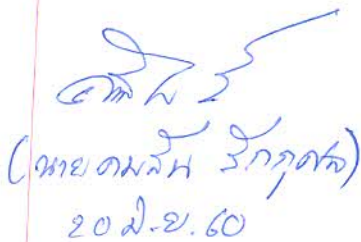 (นายคมสัน รักกุศล)
20 มิ.ย. 60